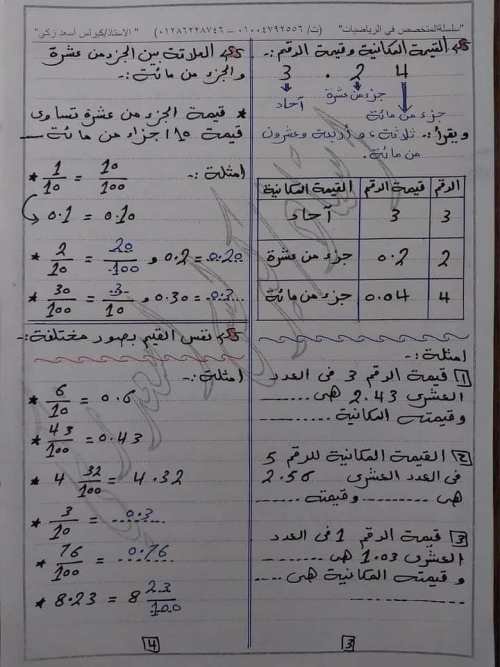 "سلسلة المتخصص في الرياضيات" (ت/ ٠١٠٠٤٧٩٢٥٥٦ – ٠١٢٨٦٢٢٨٧٤٦) "الاستاذ/كيرلس أسعد زكي"
القيمة المكانية وقيمة الرقم:-
3 . 2 4
آحاد جزء من عشرة
جزء من مائة
ويقرأ:- ثلاثة، وأربعة وعشرون
من مائة.
الرقم قيمة الرقم القيمة المكانية
3 3 آحاد
2 0.2 جزء من عشرة
4 0.04 جزء من مائة
امثلة:-
1 قيمة الرقم 3 فى العدد
العشرى 2.43 هى ........
وقيمته المكانية ........
2 القيمة المكانية للرقم 5
فى العدد العشرى 2.56
هى ........ وقيمته ......
3 قيمة الرقم 1 فى العدد
العشرى 1.03 هى ........
وقيمته المكانية هى ......
3
العلاقة بين الجزء من عشرة
والجزء من مائة:-
* قيمة الجزء من عشرة تساوى
قيمة 10 اجزاء من مائة
امثلة:-
* 1/10 = 10/100
0.1 = 0.10
* 2/10 = 20/100 و 0.2 = 0.20
* 30/100 = 3/10 و 0.30 = 0.3
نفس القيم بصور مختلفة:-
امثلة:-
* 6/10 = 0.6
* 43/100 = 0.43
* 4 32/100 = 4.32
* 3/10 = 0.3
* 76/100 = 0.76
* 8.23 = 8 23/100
4